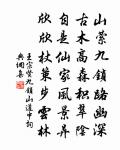 山縈九鎖路幽深
古木高森積翠陰
自是仙家風景异
欣欣杖策步雲林
王宗賢九鎖山道中詞
典網集